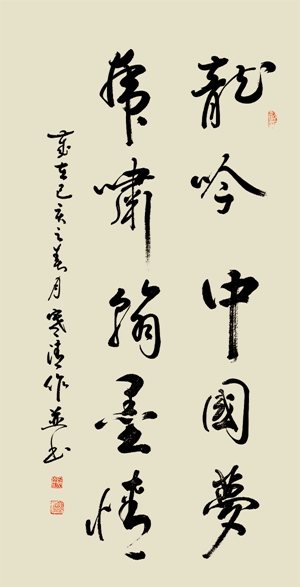 龍吟中國夢
虎嘯翰墨情
歲在己亥之春月寒清作並书